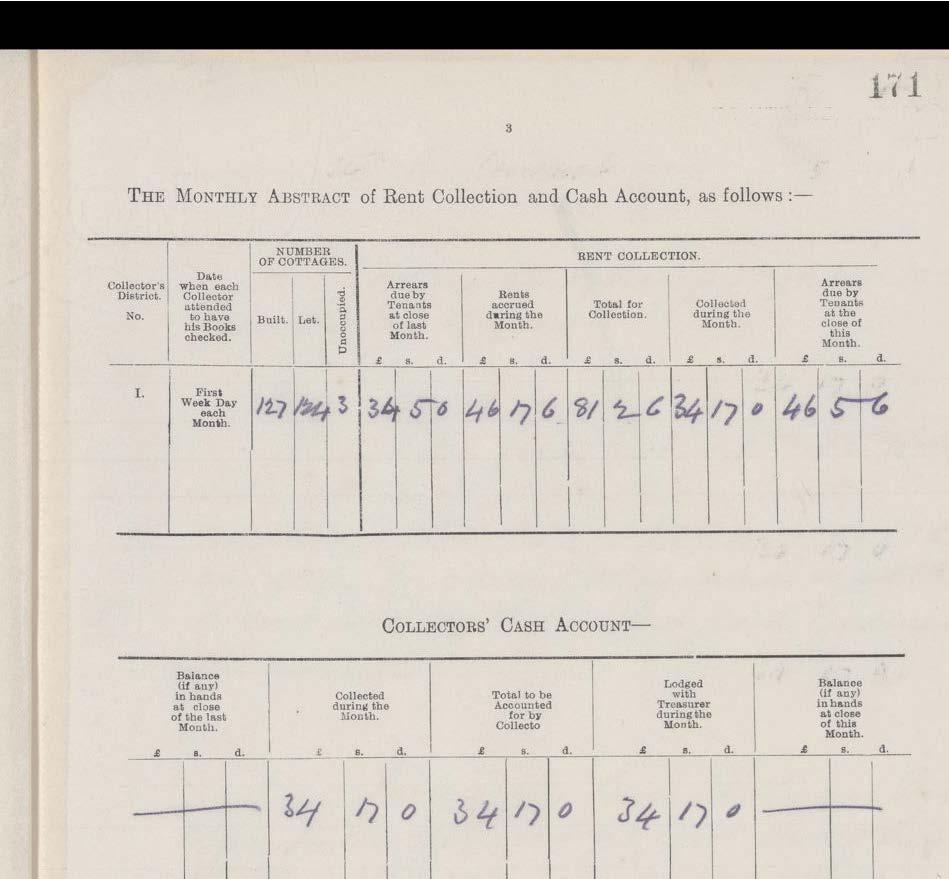 171
3
THE MONTHLY ABSTRACT of Rent Collection and Cash Account, as follows :—
Collector's District. No.
Date when each Collector attended to have his Books checked.
NUMBER OF COTTAGES.
Built. Let. Unoccupied.
RENT COLLECTION.
Arrears due by Tenants at close of last Month.
Rents accrued during the Month.
Total for Collection.
Collected during the Month.
Arrears due by Tenants at the close of this Month.
£ s. d. £ s. d. £ s. d. £ s. d. £ s. d.
I. First Week Day each Month. 127 124 3 34 5 0 46 17 6 81 2 6 34 17 0 46 5 6
COLLECTORS' CASH ACCOUNT—
Balance (if any) in hands at close of the last Month.
Collected during the Month.
Total to be Accounted for by Collecto
Lodged with Treasurer during the Month.
Balance (if any) in hands at close of this Month.
£ s. d. £ s. d. £ s. d. £ s. d. £ s. d.
— 34 17 0 34 17 0 34 17 0 —